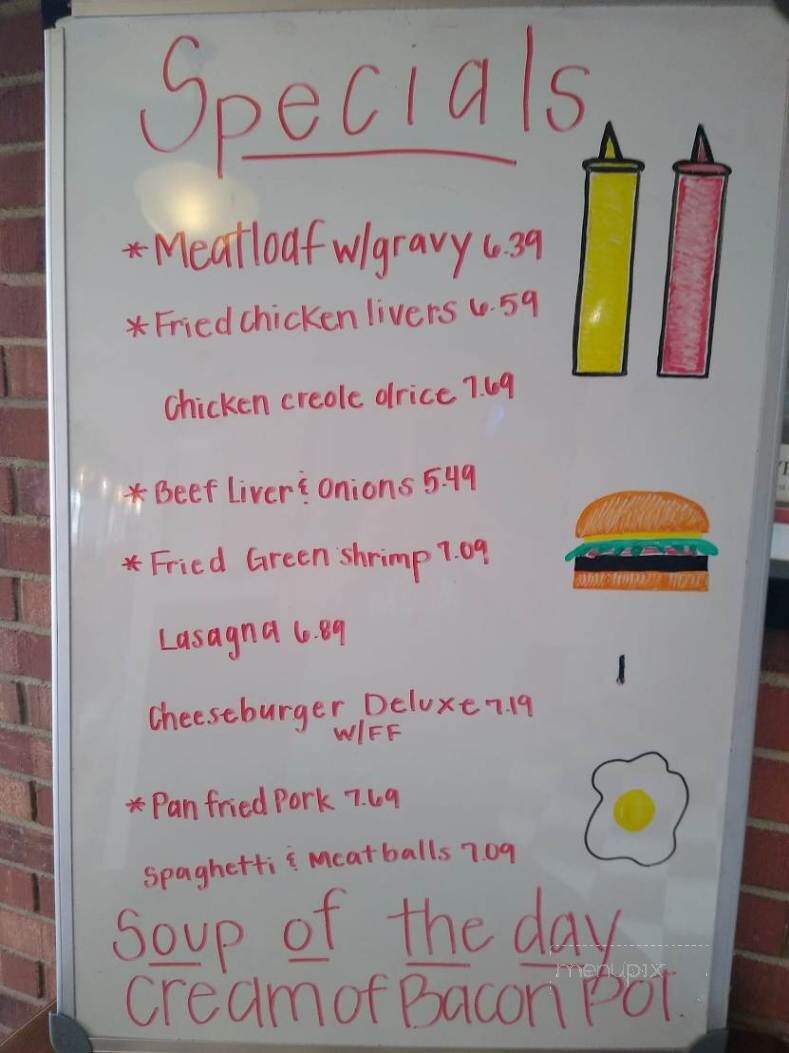 Specials
*Meatloaf w/gravy 6.39
*Fried chicken livers 6.59
Chicken creole o/rice 7.69
*Beef Liver & Onions 5.49
*Fried Green shrimp 7.09
Lasagna 6.89
Cheeseburger Deluxe 7.19
W/FF
*Pan fried Pork 7.69
Spaghetti & Meatballs 7.09
Soup of the day
menupix
Cream of Bacon Pot.